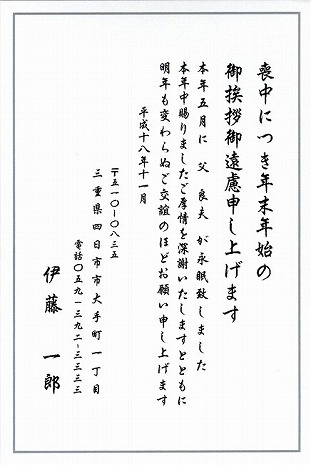 喪中につき年末年始の
御挨拶御遠慮申し上げます
本年五月に 父 良夫 が永眠致しました
本年中賜りましたご厚情を深謝いたしますとともに
明年も変わらぬご交誼のほどお願い申し上げます
平成十八年十一月
〒五一〇-〇八三五
三重県四日市市大手町一丁目
電話〇五九-三九二-三三三三
伊藤 一郎